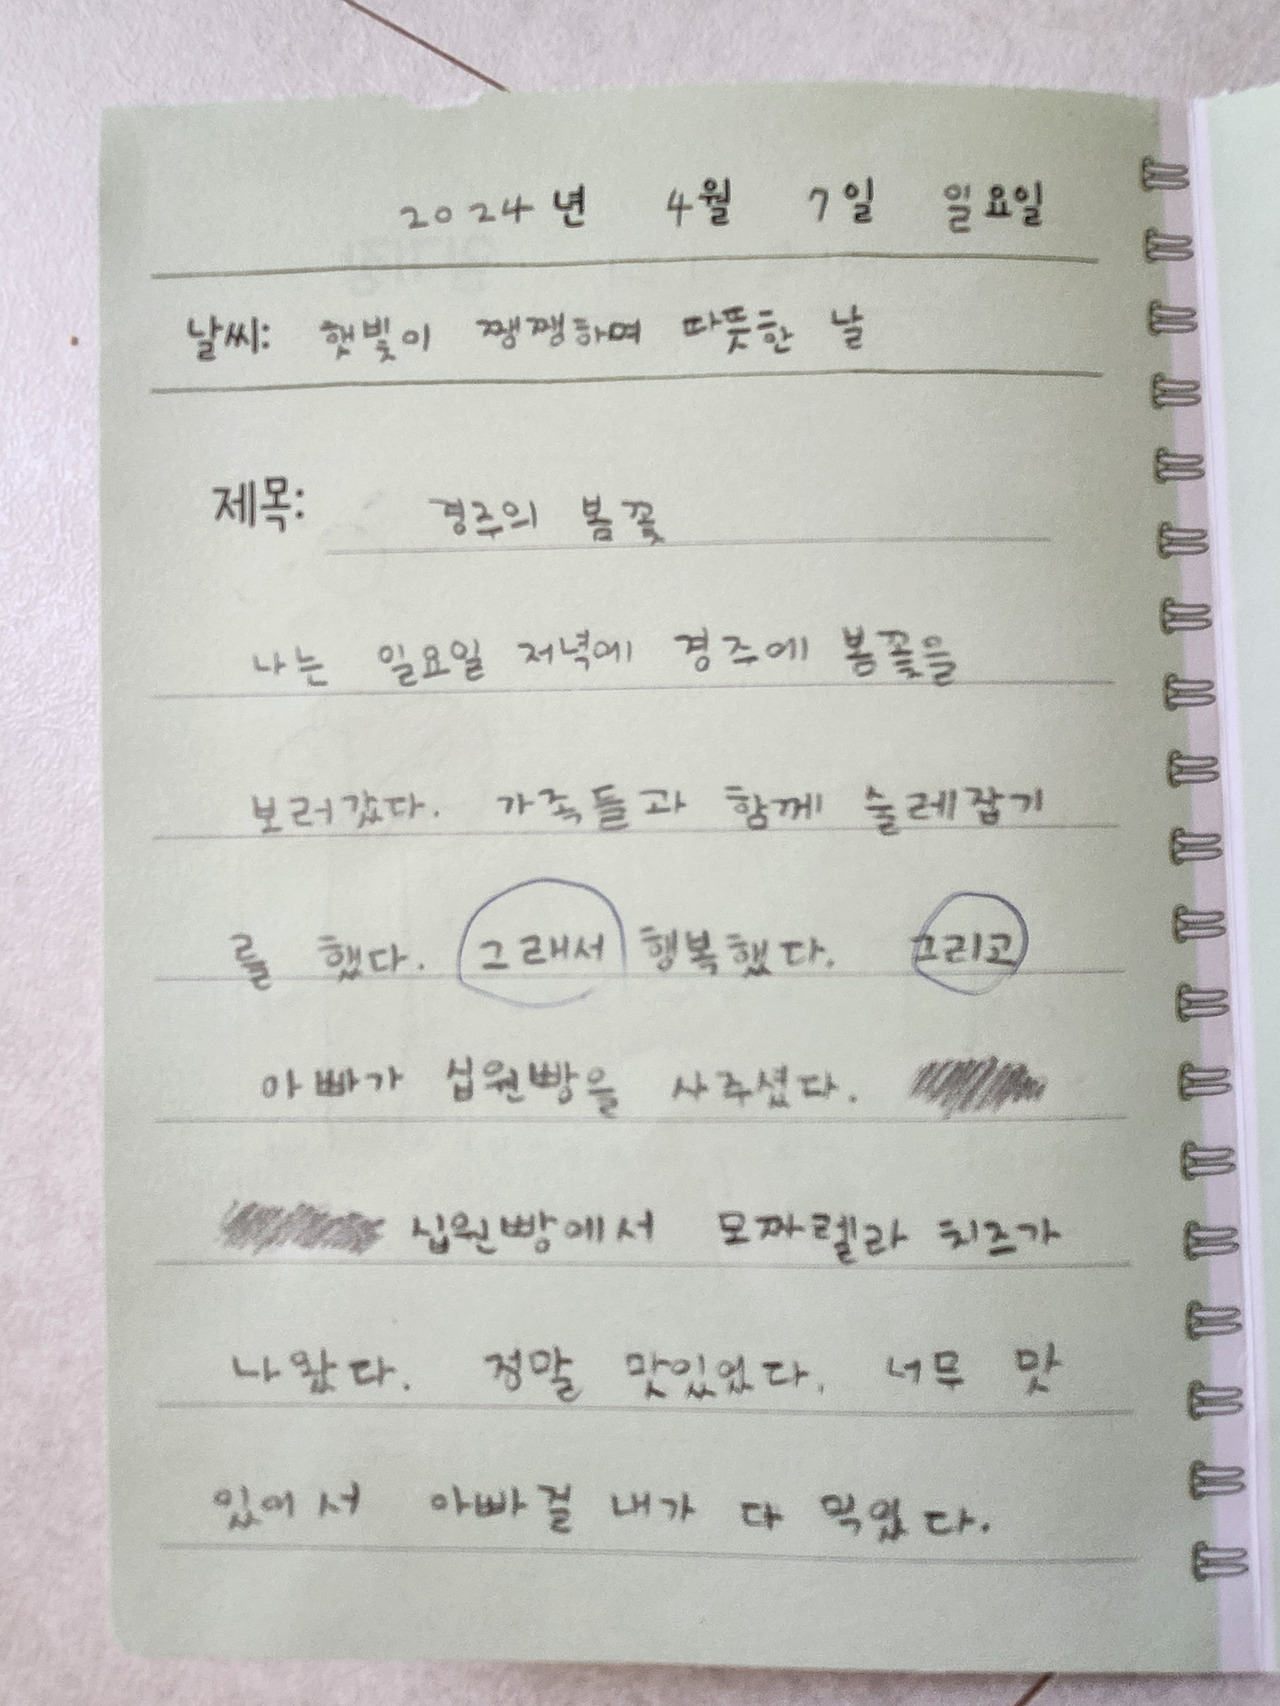 2024년 4월 7일 일요일
날씨: 햇빛이 쨍쨍하며 따뜻한 날
제목: 경주의 봄꽃
나는 일요일 저녁에 경주에 봄꽃을
보러갔다. 가족들과 함께 술레잡기
를 했다. 그래서 행복했다. 그리고
아빠가 십원빵을 사주셨다.
십원빵에서 모짜렐라 치즈가
나왔다. 정말 맛있었다. 너무 맛
있어서 아빠걸 내가 다 먹었다.